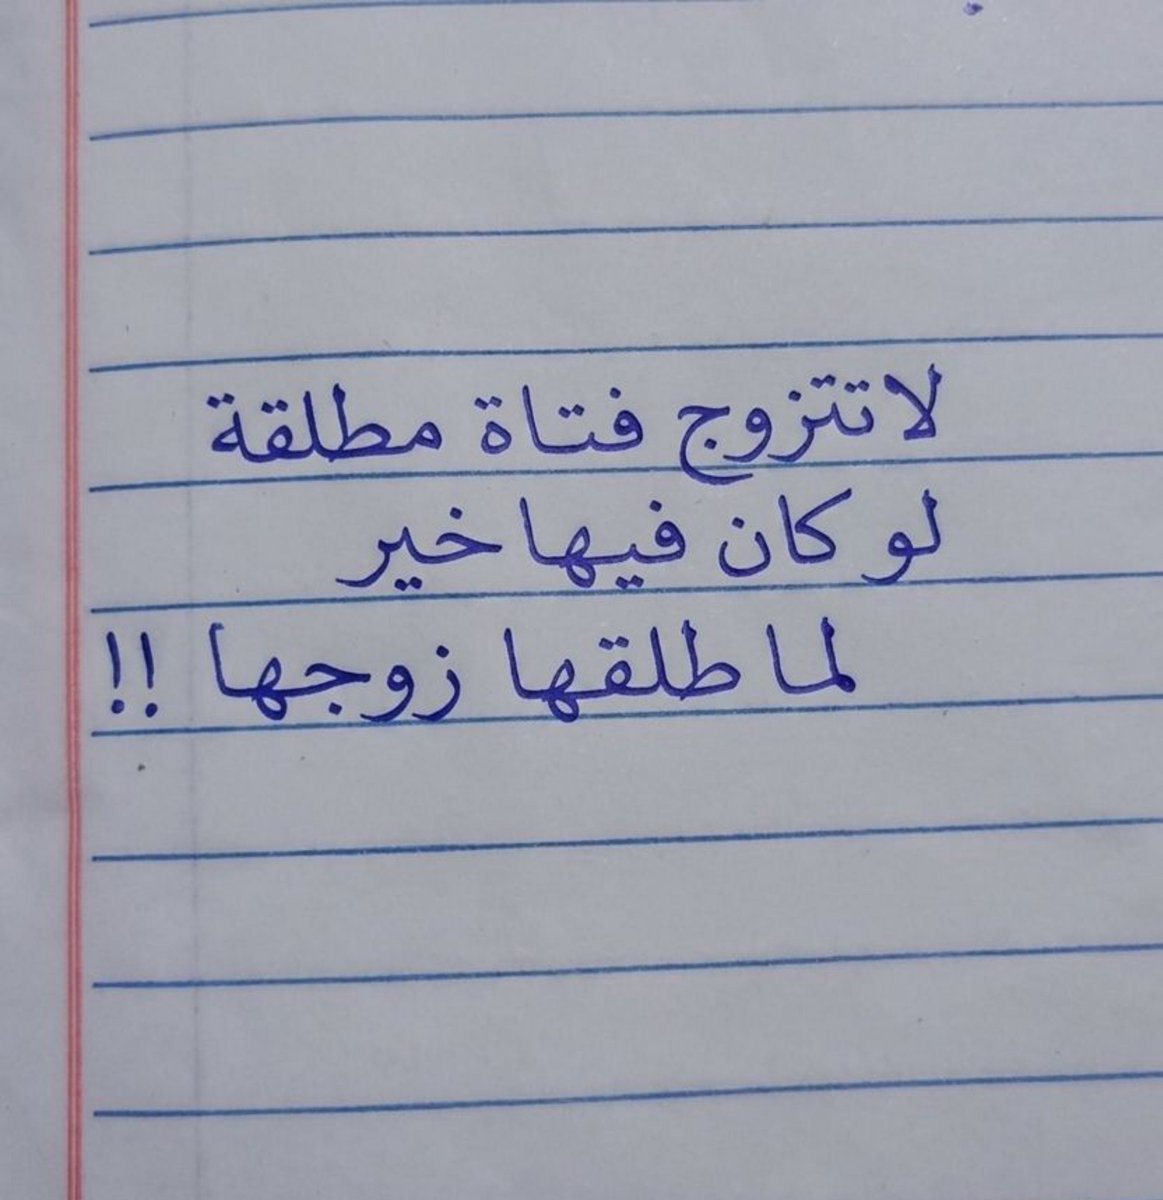 لا تتزوج فتاة مطلقة
لو كان فيها خير
لما طلقها زوجها !!